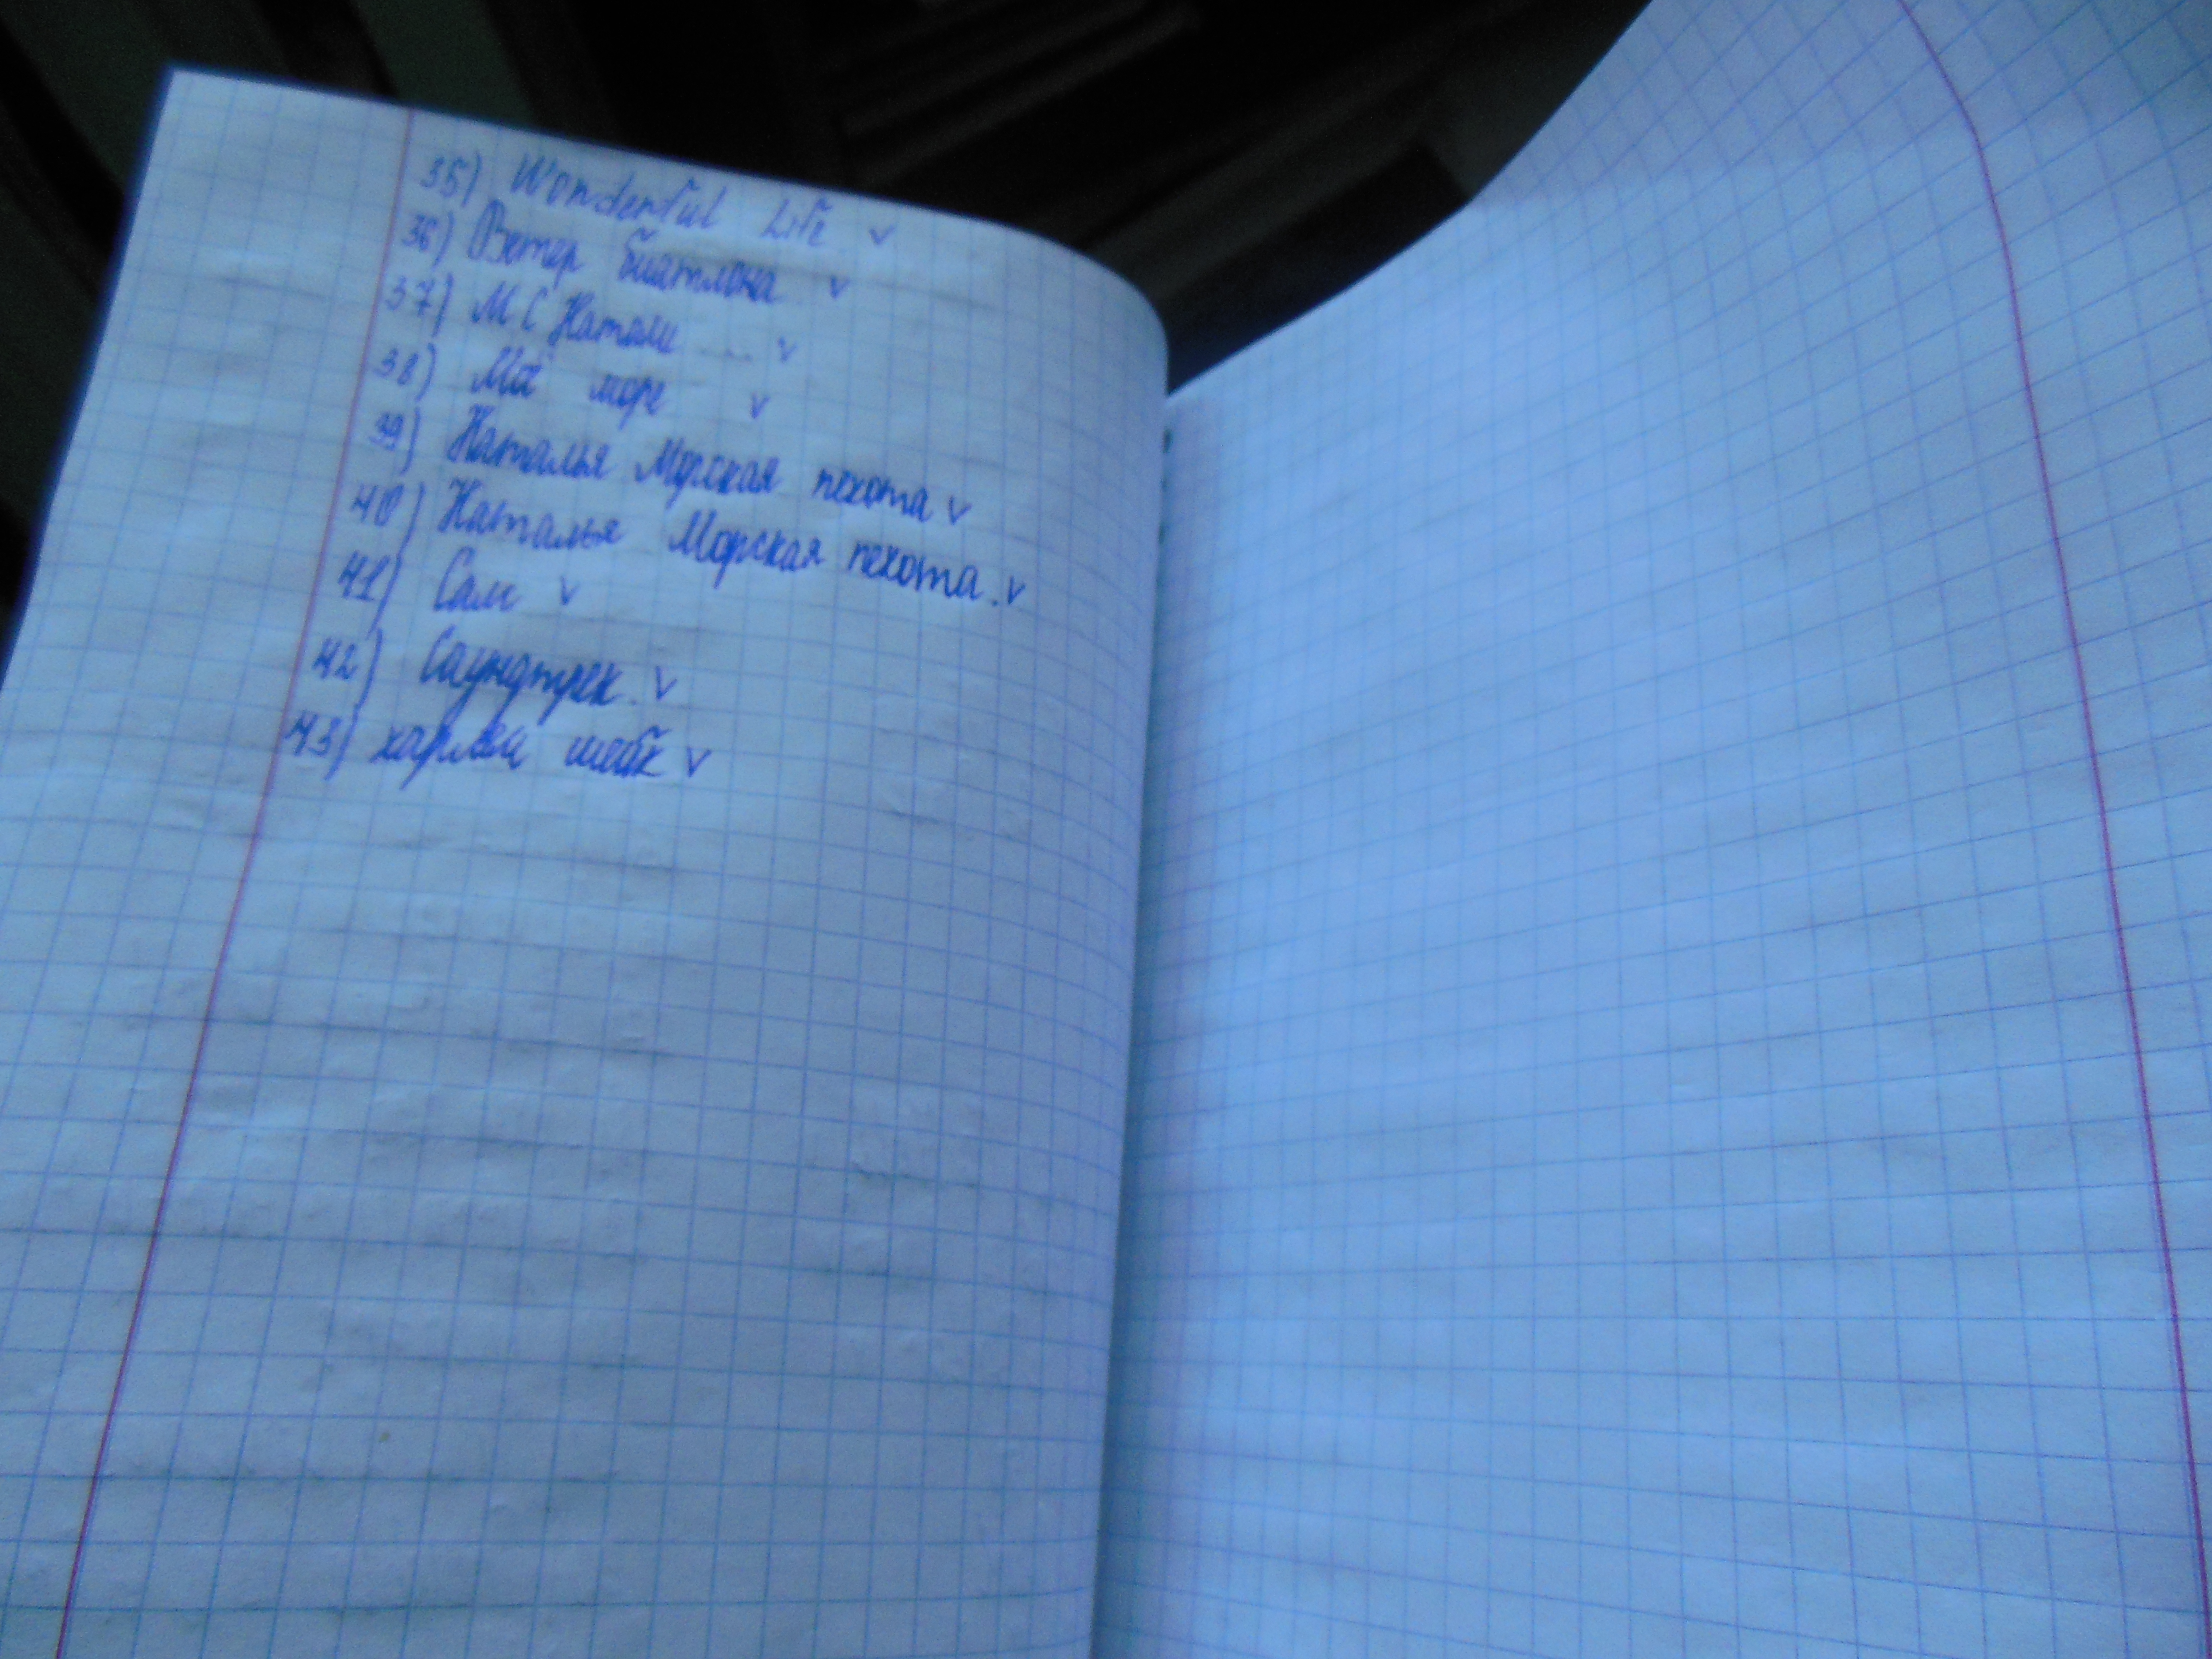 35) Wonderful Life v
36) Ветер биатлона v
37) МС Натали ... v
38) Моё море v
39) Наталья Морская пехота v
40) Наталья Морская пехота. v
41) Сам v
42) Саундтрек. v
43) харлем шейк v